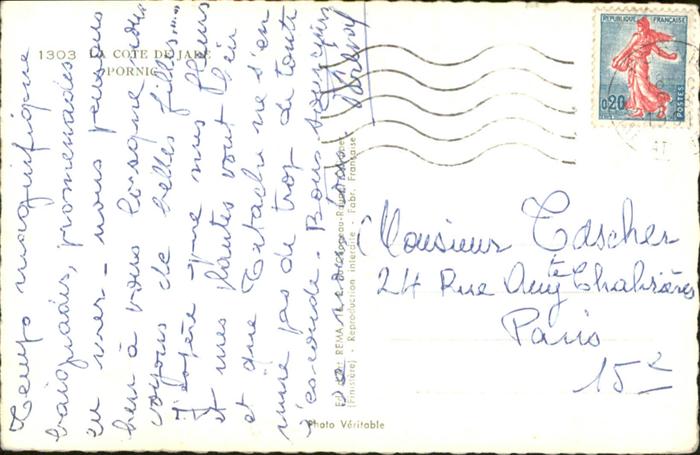 1303 LA COTE DE JADE
PORNIC
Temps magnifique
baignades, promenades
en mer - nous pensons
bien à vous lorsque nous
voyons de belles filles....
J'espère que mes fleurs
et mes plantes vont bien
et que Tatachu ne s'en
nuie pas de trop de toute
Bons
REPUBLIQUE FRANÇAISE
0,20
POSTES
Monsieur Tascher
24 Rue Chabrières
Paris
15e
Reproduction interdite - Fabr. Française
(Finistère)
Photo Véritable